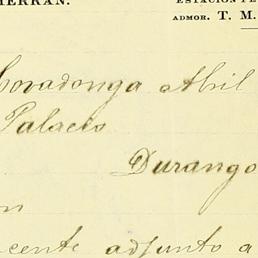 HERRAN.
ESTACION
ADMOR. T. M.
Covadonga Abil
Palacio
Durango
on
cente adjunto a